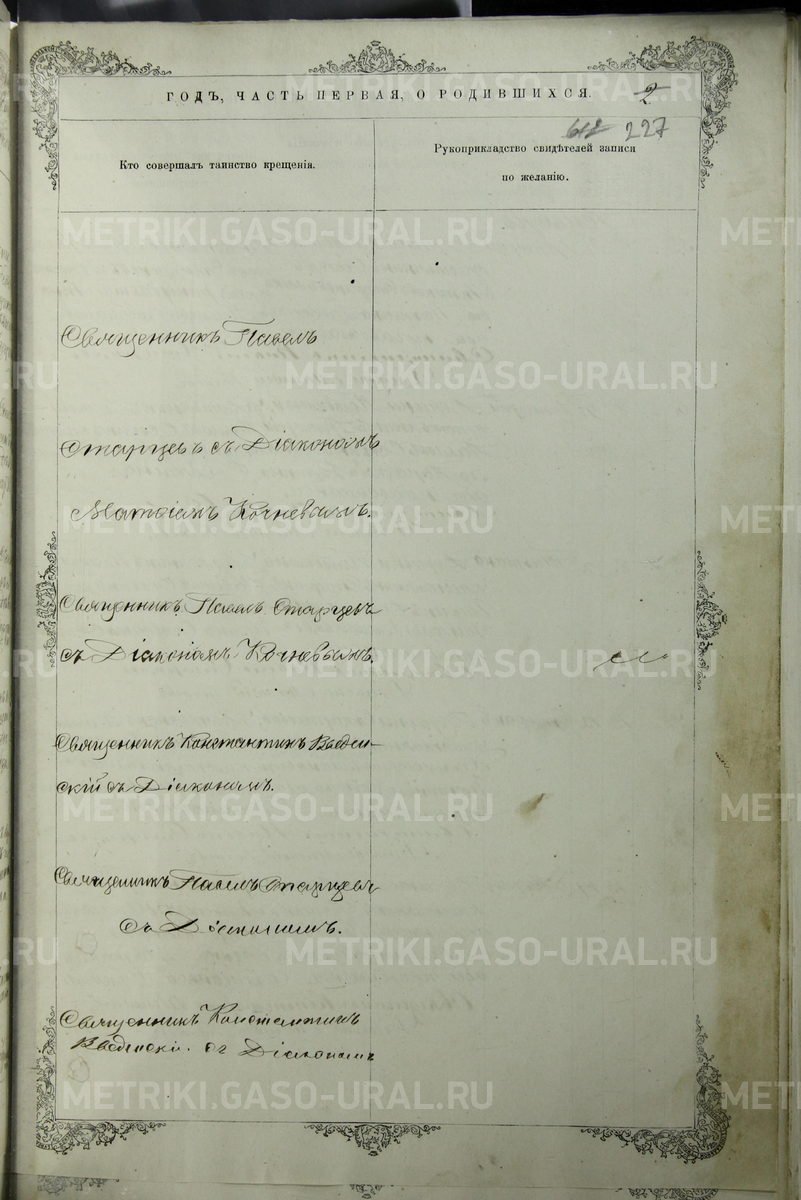 ГОДЪ, ЧАСТЬ ПЕРВАЯ, О РОДИВШИХСЯ.
2
612 227
Кто совершалъ таинство крещенія.
Рукоприкладство свидѣтелей записи
по желанію.
Священникъ Павелъ
Старцевъ съ Діакономъ
Матѳіемъ Кочневымъ.
Священникъ Павелъ Старцевъ
съ Діакономъ Кочневымъ.
Священникъ Константинъ Введен-
скій съ Діакономъ.
Священникъ Павелъ Старцевъ
съ Діакономъ.
Священникъ Константинъ
Введенскій съ Діакономъ
METRIKI.GASO-URAL.RU